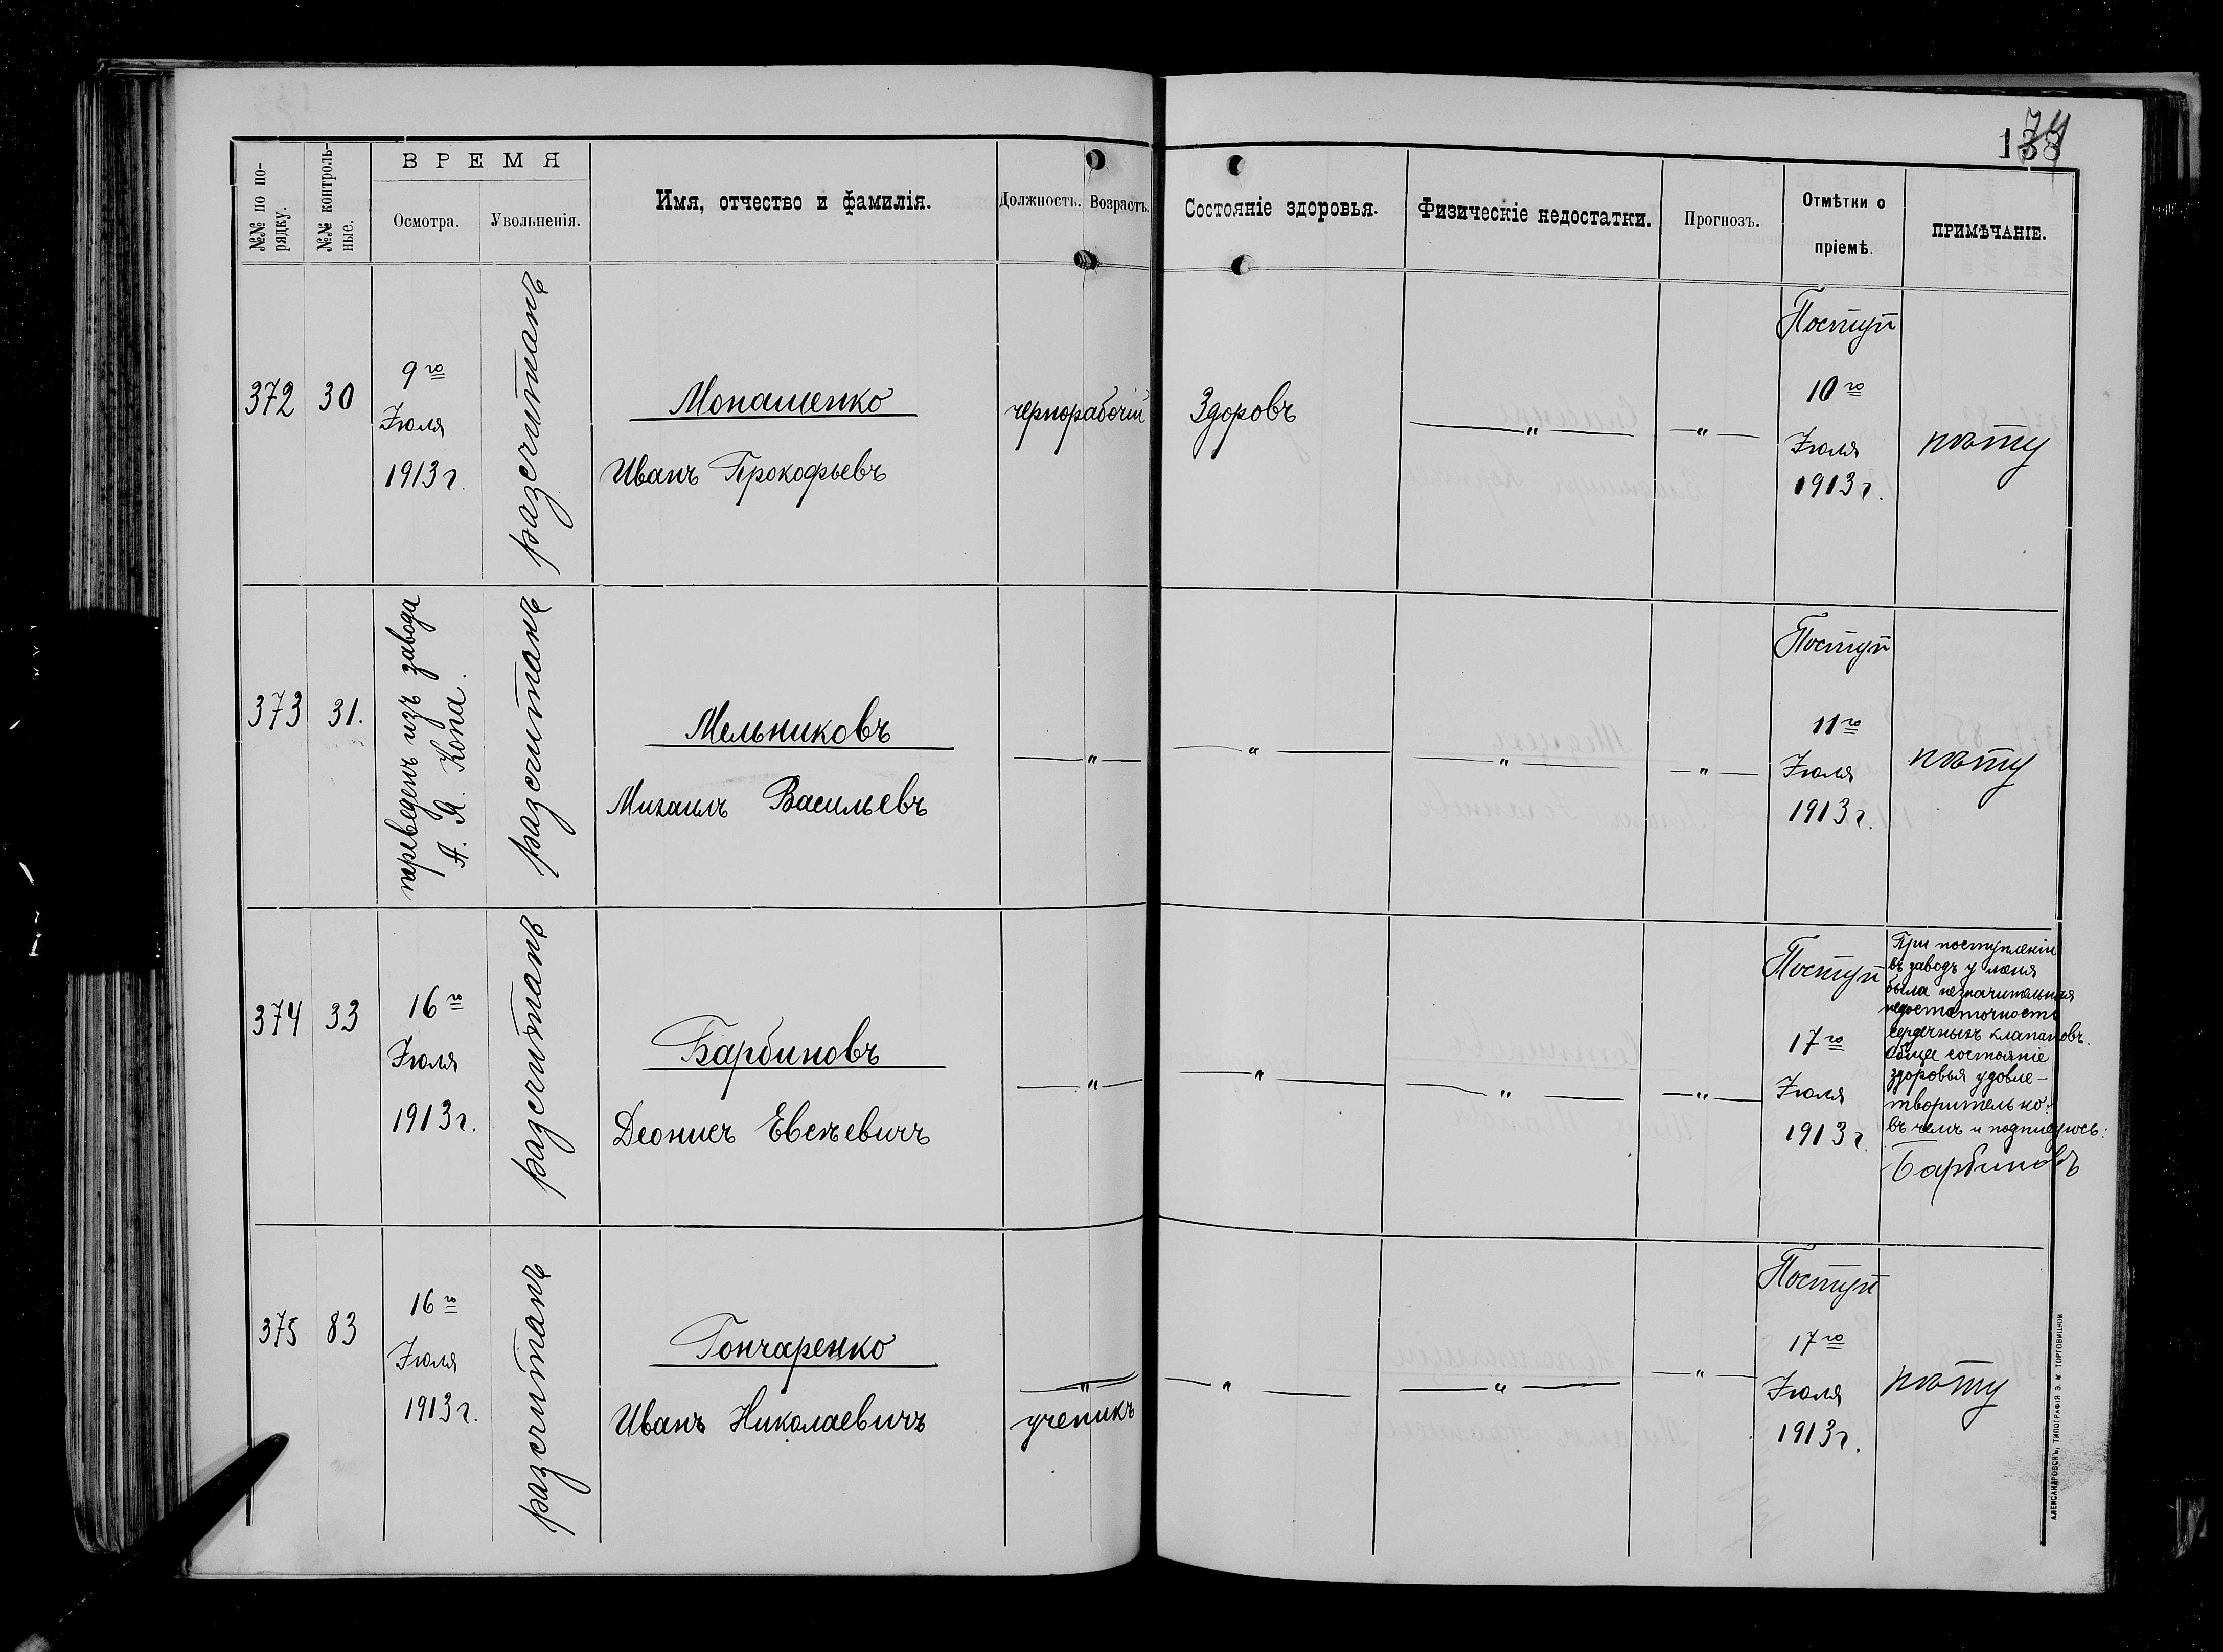 138
74
№№ по по-
рядку.
№№ контроль-
ные.
ВРЕМЯ
Осмотра.
Увольненія.
Имя, отчество и фамилія.
Должность.
Возрастъ.
Состояніе здоровья.
Физическіе недостатки.
Прогнозъ.
Отмѣтки о
пріемѣ.
ПРИМѢЧАНІЕ.
372
30
9го
Іюля
1913 г.
разсчитанъ
Монашенко
Иванъ Прокофьевъ
чернорабочій
Здоровъ
— " —
— " —
Поступ
10го
Іюля
1913 г.
нѣту
373
31.
переведенъ изъ завода
А. Я. Копа.
разсчитанъ
Мельниковъ
Михаилъ Васильевъ
— " —
— " —
— " —
— " —
Поступ
11го
Іюля
1913 г.
нѣту
374
33
16го
Іюля
1913 г.
разсчитанъ
Барбиновъ
Деонисъ
— " —
— " —
— " —
— " —
Поступ
17го
Іюля
1913 г.
При поступленіи
въ заводъ у меня
была незначительная
недостаточность
сердечныхъ клапановъ.
Общее состояніе
здоровья удовле-
творительно:
въ чемъ и подписуюсь:
Барбиновъ
375
83
16го
Іюля
1913 г.
разсчитанъ
Гончаренко
Иванъ Николаевичъ
— " —
ученикъ
— " —
— " —
— " —
Поступ
17го
Іюля
1913 г.
нѣту
АЛЕКСАНДРОВСКЪ, ТИПОГРАФІЯ Э. М. ТОРГОВИЦКОЙ